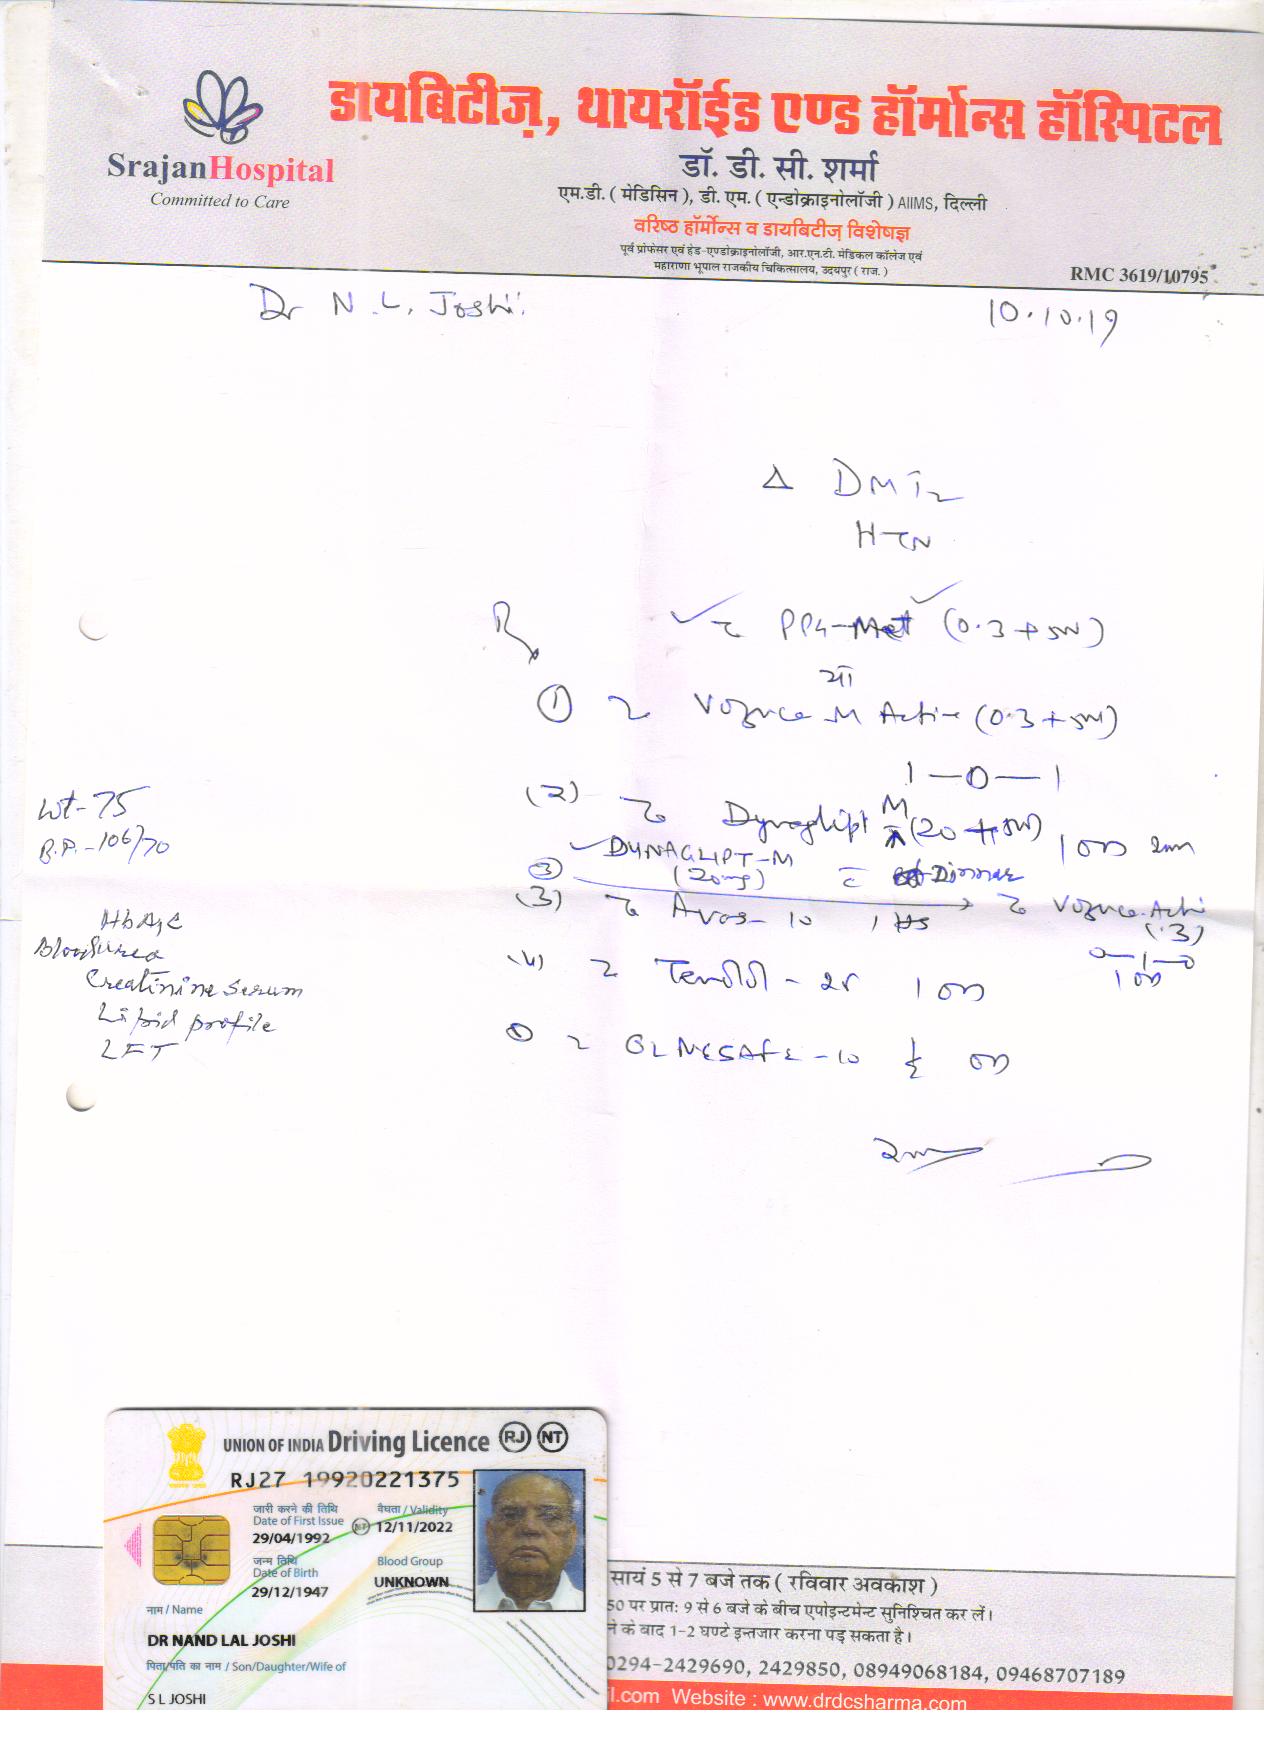 डायबिटीज़, थायरॉईड एण्ड हॉर्मोन्स हॉस्पिटल
SrajanHospital
Committed to Care
डॉ. डी. सी. शर्मा
एम.डी. ( मेडिसिन ), डी. एम. ( एन्डोक्राइनोलॉजी ) AIIMS, दिल्ली
वरिष्ठ हॉर्मोन्स व डायबिटीज़ विशेषज्ञ
पूर्व प्रोफेसर एवं हेड-एण्डोक्राइनोलॉजी, आर.एन.टी. मेडिकल कॉलेज एवं
महाराणा भूपाल राजकीय चिकित्सालय, उदयपुर ( राज. )
RMC 3619/10795
Dr N.L. Joshi
10.10.19
Δ DM T2
HTN
Rx
PPG-Met (0.3 +
या
① Vogence M Active (0.3 +
1—0—1
(2) Dynaglipt M (20 + 1 OD
③ DYNAGLIPT-M
(20mg) Dinner
(3) Avas-10 1 HS
(.3)
0—1—0
1 OD
(4) 1 OD
-10 ½ OD
Wt-75
B.P.-106/70
HbA1C
Blood Urea
Creatinine Serum
Lipid profile
LFT
UNION OF INDIA Driving Licence RJ NT
RJ27 19920221375
जारी करने की तिथि
Date of First Issue
29/04/1992
वैधता / Validity
NT 12/11/2022
जन्म तिथि
Date of Birth
29/12/1947
Blood Group
UNKNOWN
नाम / Name
DR NAND LAL JOSHI
पिता/पति का नाम / Son/Daughter/Wife of
S L JOSHI
सायं 5 से 7 बजे तक ( रविवार अवकाश )
50 पर प्रातः 9 से 6 बजे के बीच एपोइन्टमेन्ट सुनिश्चित कर लें।
ने के बाद 1-2 घण्टे इन्तजार करना पड़ सकता है।
0294-2429690, 2429850, 08949068184, 09468707189
il.com Website : www.drdcsharma.com